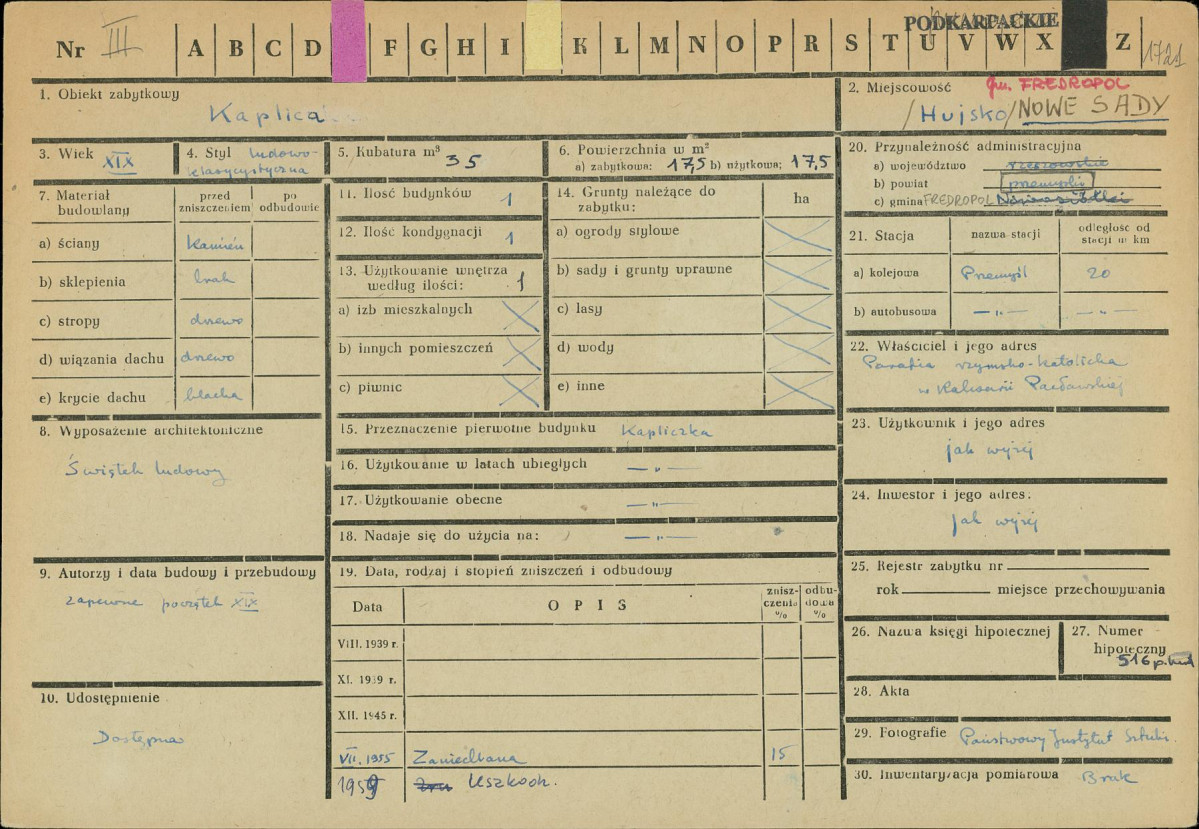 PODKARPACKIE
Nr III A B C D F G H I K L M N O P R S T U V W X Z 1721
1. Obiekt zabytkowy
Kaplica
2. Miejscowość gm. FREDROPOL
/Hujsko/NOWE SADY
3. Wiek XIX
4. Styl ludowo-
klasycystyczna
5. Kubatura m³ 35
6. Powierzchnia w m²
a) zabytkowa: 17,5 b) użytkowa: 17,5
20. Przynależność administracyjna
a) województwo rzeszowskie
b) powiat przemyski
c) gmina FREDROPOL
7. Materiał budowlany
przed zniszczeniem
po odbudowie
a) ściany kamień
b) sklepienia brak
c) stropy drzewo
d) wiązania dachu drzewo
e) krycie dachu blacha
11. Ilość budynków 1
12. Ilość kondygnacji 1
13. Użytkowanie wnętrza
według ilości: 1
a) izb mieszkalnych
b) innych pomieszczeń
c) piwnic
14. Grunty należące do
zabytku: ha
a) ogrody stylowe
b) sady i grunty uprawne
c) lasy
d) wody
e) inne
21. Stacja
nazwa stacji
odległość od
stacji w km
a) kolejowa Przemyśl 20
b) autobusowa -„- -„-
22. Właściciel i jego adres
Parafia rzymsko-katolicka
w Kalwarii Pacławskiej
8. Wyposażenie architektoniczne
Świątek ludowy
15. Przeznaczenie pierwotne budynku Kapliczka
16. Użytkowanie w latach ubiegłych -„-
17. Użytkowanie obecne -„-
18. Nadaje się do użycia na: -„-
23. Użytkownik i jego adres
jak wyżej
24. Inwestor i jego adres.
jak wyżej
9. Autorzy i data budowy i przebudowy
zapewne początek XIX
19. Data, rodzaj i stopień zniszczeń i odbudowy
Data OPIS
znisz-
czenia
%
odbu-
dowa
%
VIII. 1939 r.
XI. 1939 r.
XII. 1945 r.
VII. 1955 Zaniedbana 15
1959 Uszkodz.
25. Rejestr zabytku nr
rok miejsce przechowywania
26. Nazwa księgi hipotecznej
27. Numer
hipoteczny
516
10. Udostępnienie
Dostępna
28. Akta
29. Fotografie Państwowy Instytut Sztuki.
30. Inwentaryzacja pomiarowa Brak